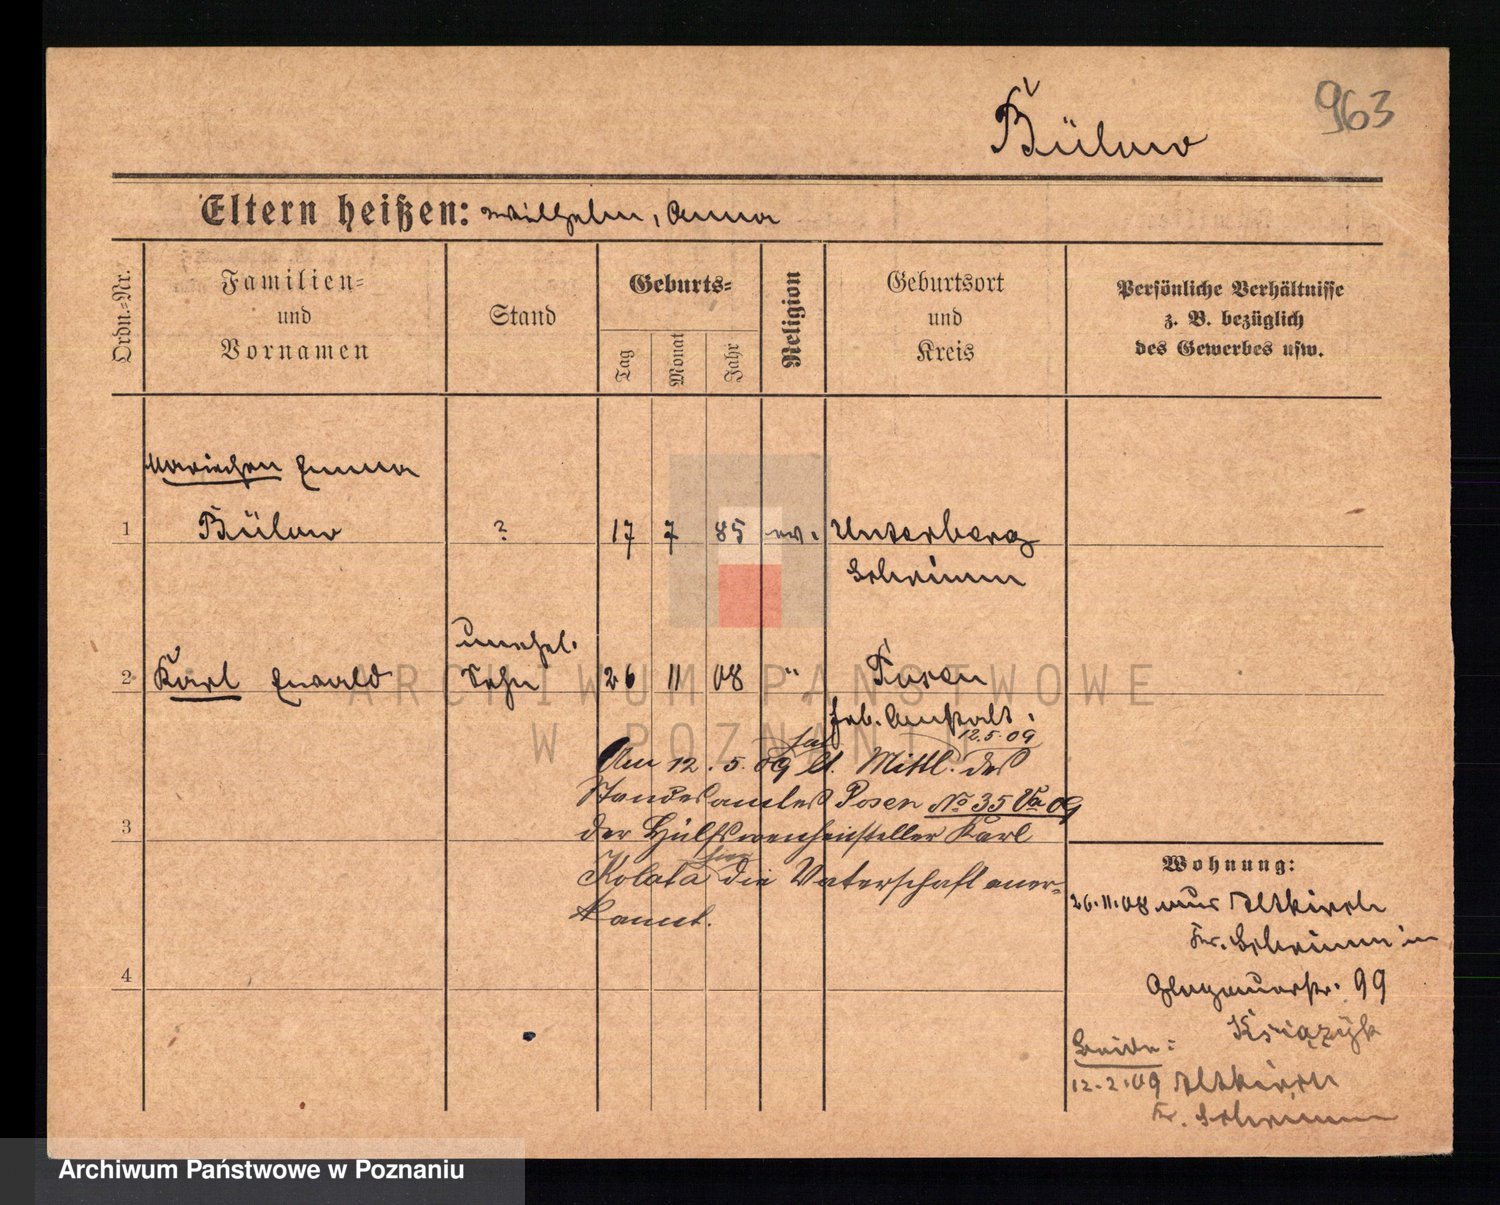 963
Bülow
Eltern heißen: Wilhelm, Anna
Ordn.-Nr.
Familien-
und
Vornamen
Stand
Geburts-
Tag
Monat
Jahr
Religion
Geburtsort
und
Kreis
Persönliche Verhältnisse
z. B. bezüglich
des Gewerbes usw.
Mariechen Emma
1 Bülow ? 17 7 85 ev. Unterberg
Schrimm
unehel.
2 Karl Ewald Sohn 26 11 08 " Posen
Heb. Anstalt.
12.5.09
Am 12. 5. 09 lt. Mittl. des
Standesamtes Posen No 35 Va 09
3 der Hülfsweichensteller Karl
Kolata die Vaterschaft aner-
kannt.
4
Wohnung:
26.11.08 aus Altkirch
Kr. Schrimm in
Glogauerstr. 99
Książyk
Beide:
12.2.09 Altkirch
Kr. Schrimm
ARCHIWUM PAŃSTWOWE
W POZNANIU
Archiwum Państwowe w Poznaniu